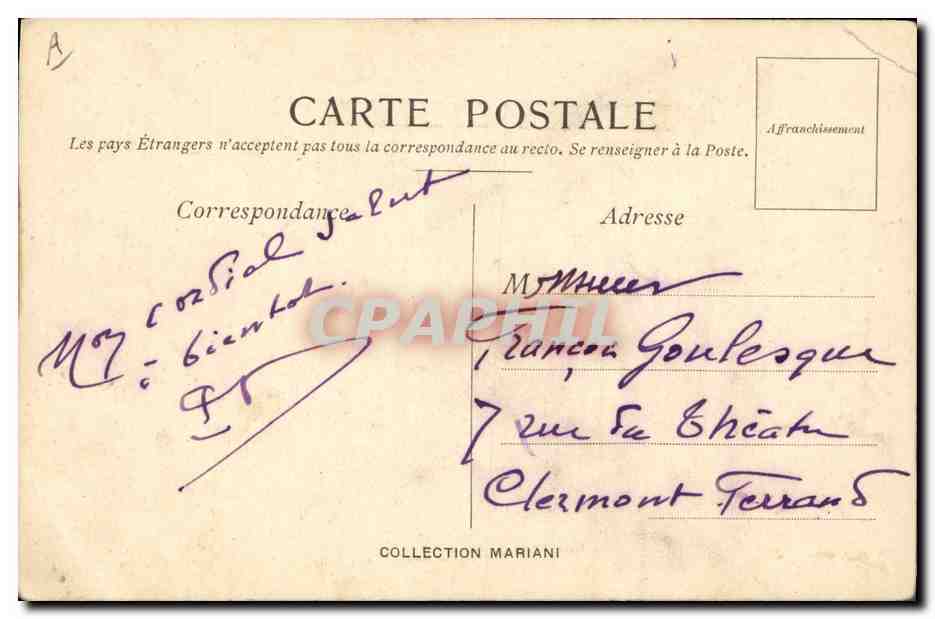 A
CARTE POSTALE
Les pays Étrangers n'acceptent pas tous la correspondance au recto. Se renseigner à la Poste.
Affranchissement
Correspondance
Mon cordial salut
à bientot.
Adresse
Monsieur
François Goulesque
7 rue du Théatre
Clermont Ferrand
COLLECTION MARIANI
CPAPHIL